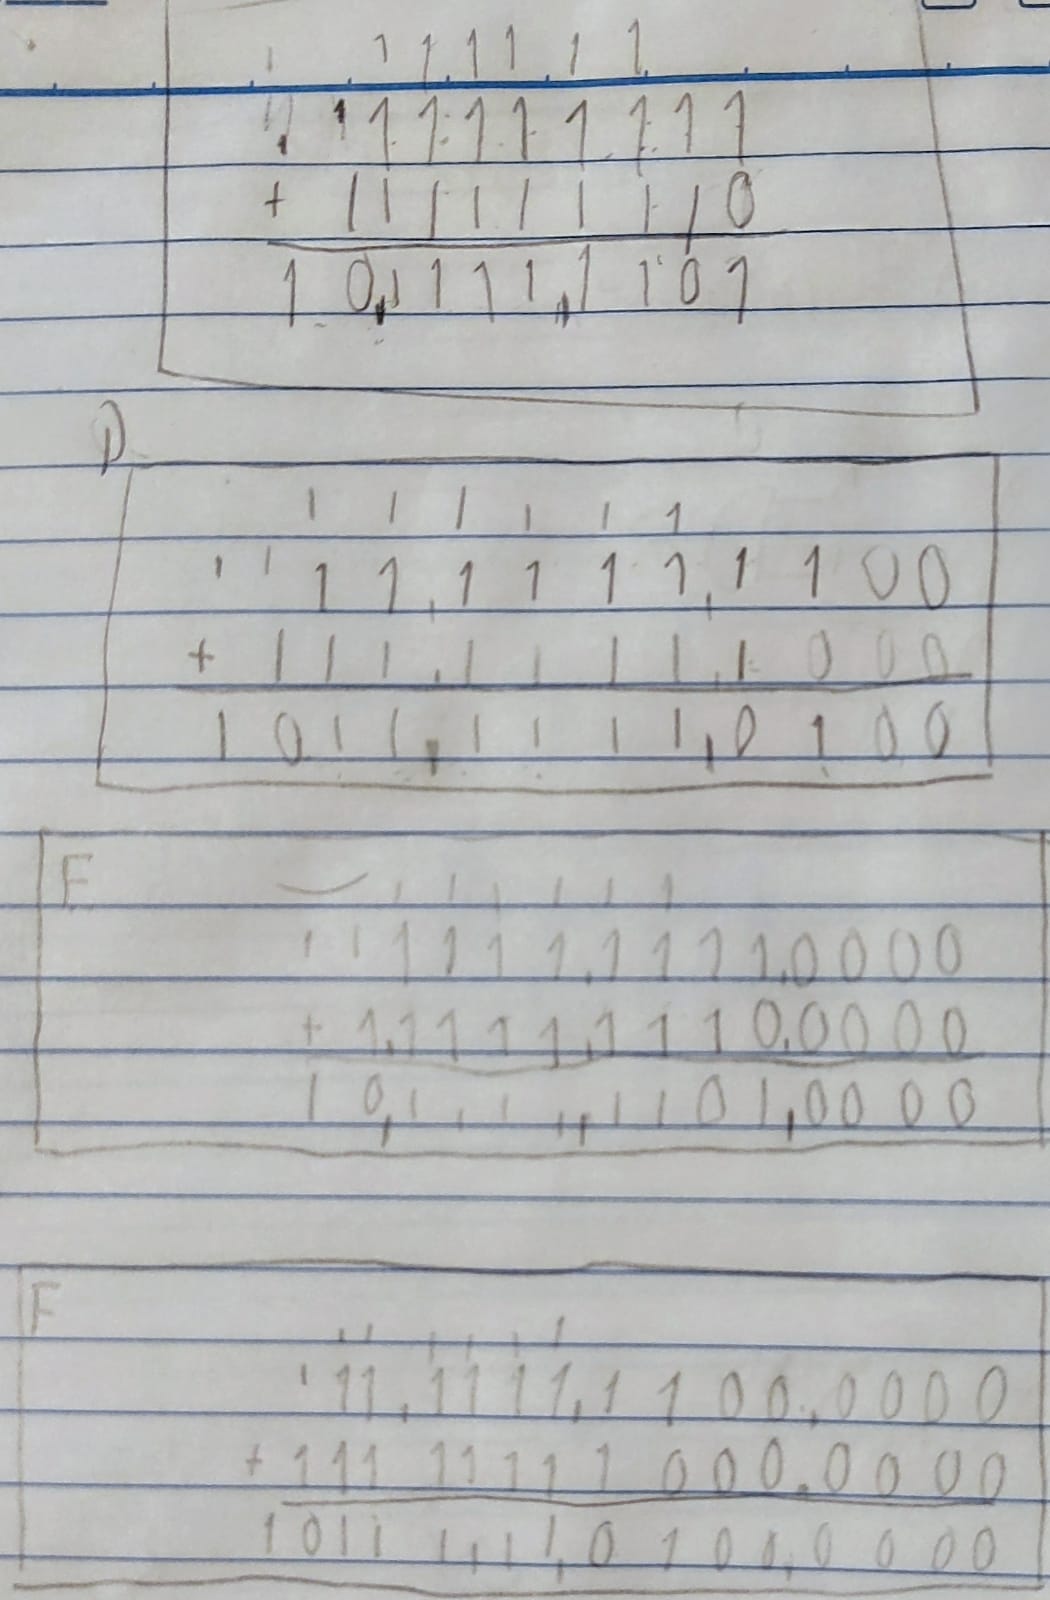 1 1 1 1 1 1 1
1 1 1 1 1 1 1 1 1
+ 1 1 1 1 1 1 1 1 0
1 0,1 1 1 1,1 1 0 1
D
1 1 1 1 1 1
1 1 1 1,1 1 1 1,1 1 0 0
+ 1 1 1,1 1 1 1,1 0 0 0
1 0 1 1,1 1 1 1,0 1 0 0
E
1 1 1 1 1 1
1 1 1 1 1 1,1 1 1 1,0 0 0 0
+ 1,1 1 1 1,1 1 1 0,0 0 0 0
1 0,1 1 1 1,1 1 0 1,0 0 0 0
F
1 1 1 1 1 1
1 1 1,1 1 1 1,1 1 0 0,0 0 0 0
+ 1 1 1 1 1 1 1 1 0 0 0,0 0 0 0
1 0 1 1 1 1 1 1,0 1 0 0,0 0 0 0